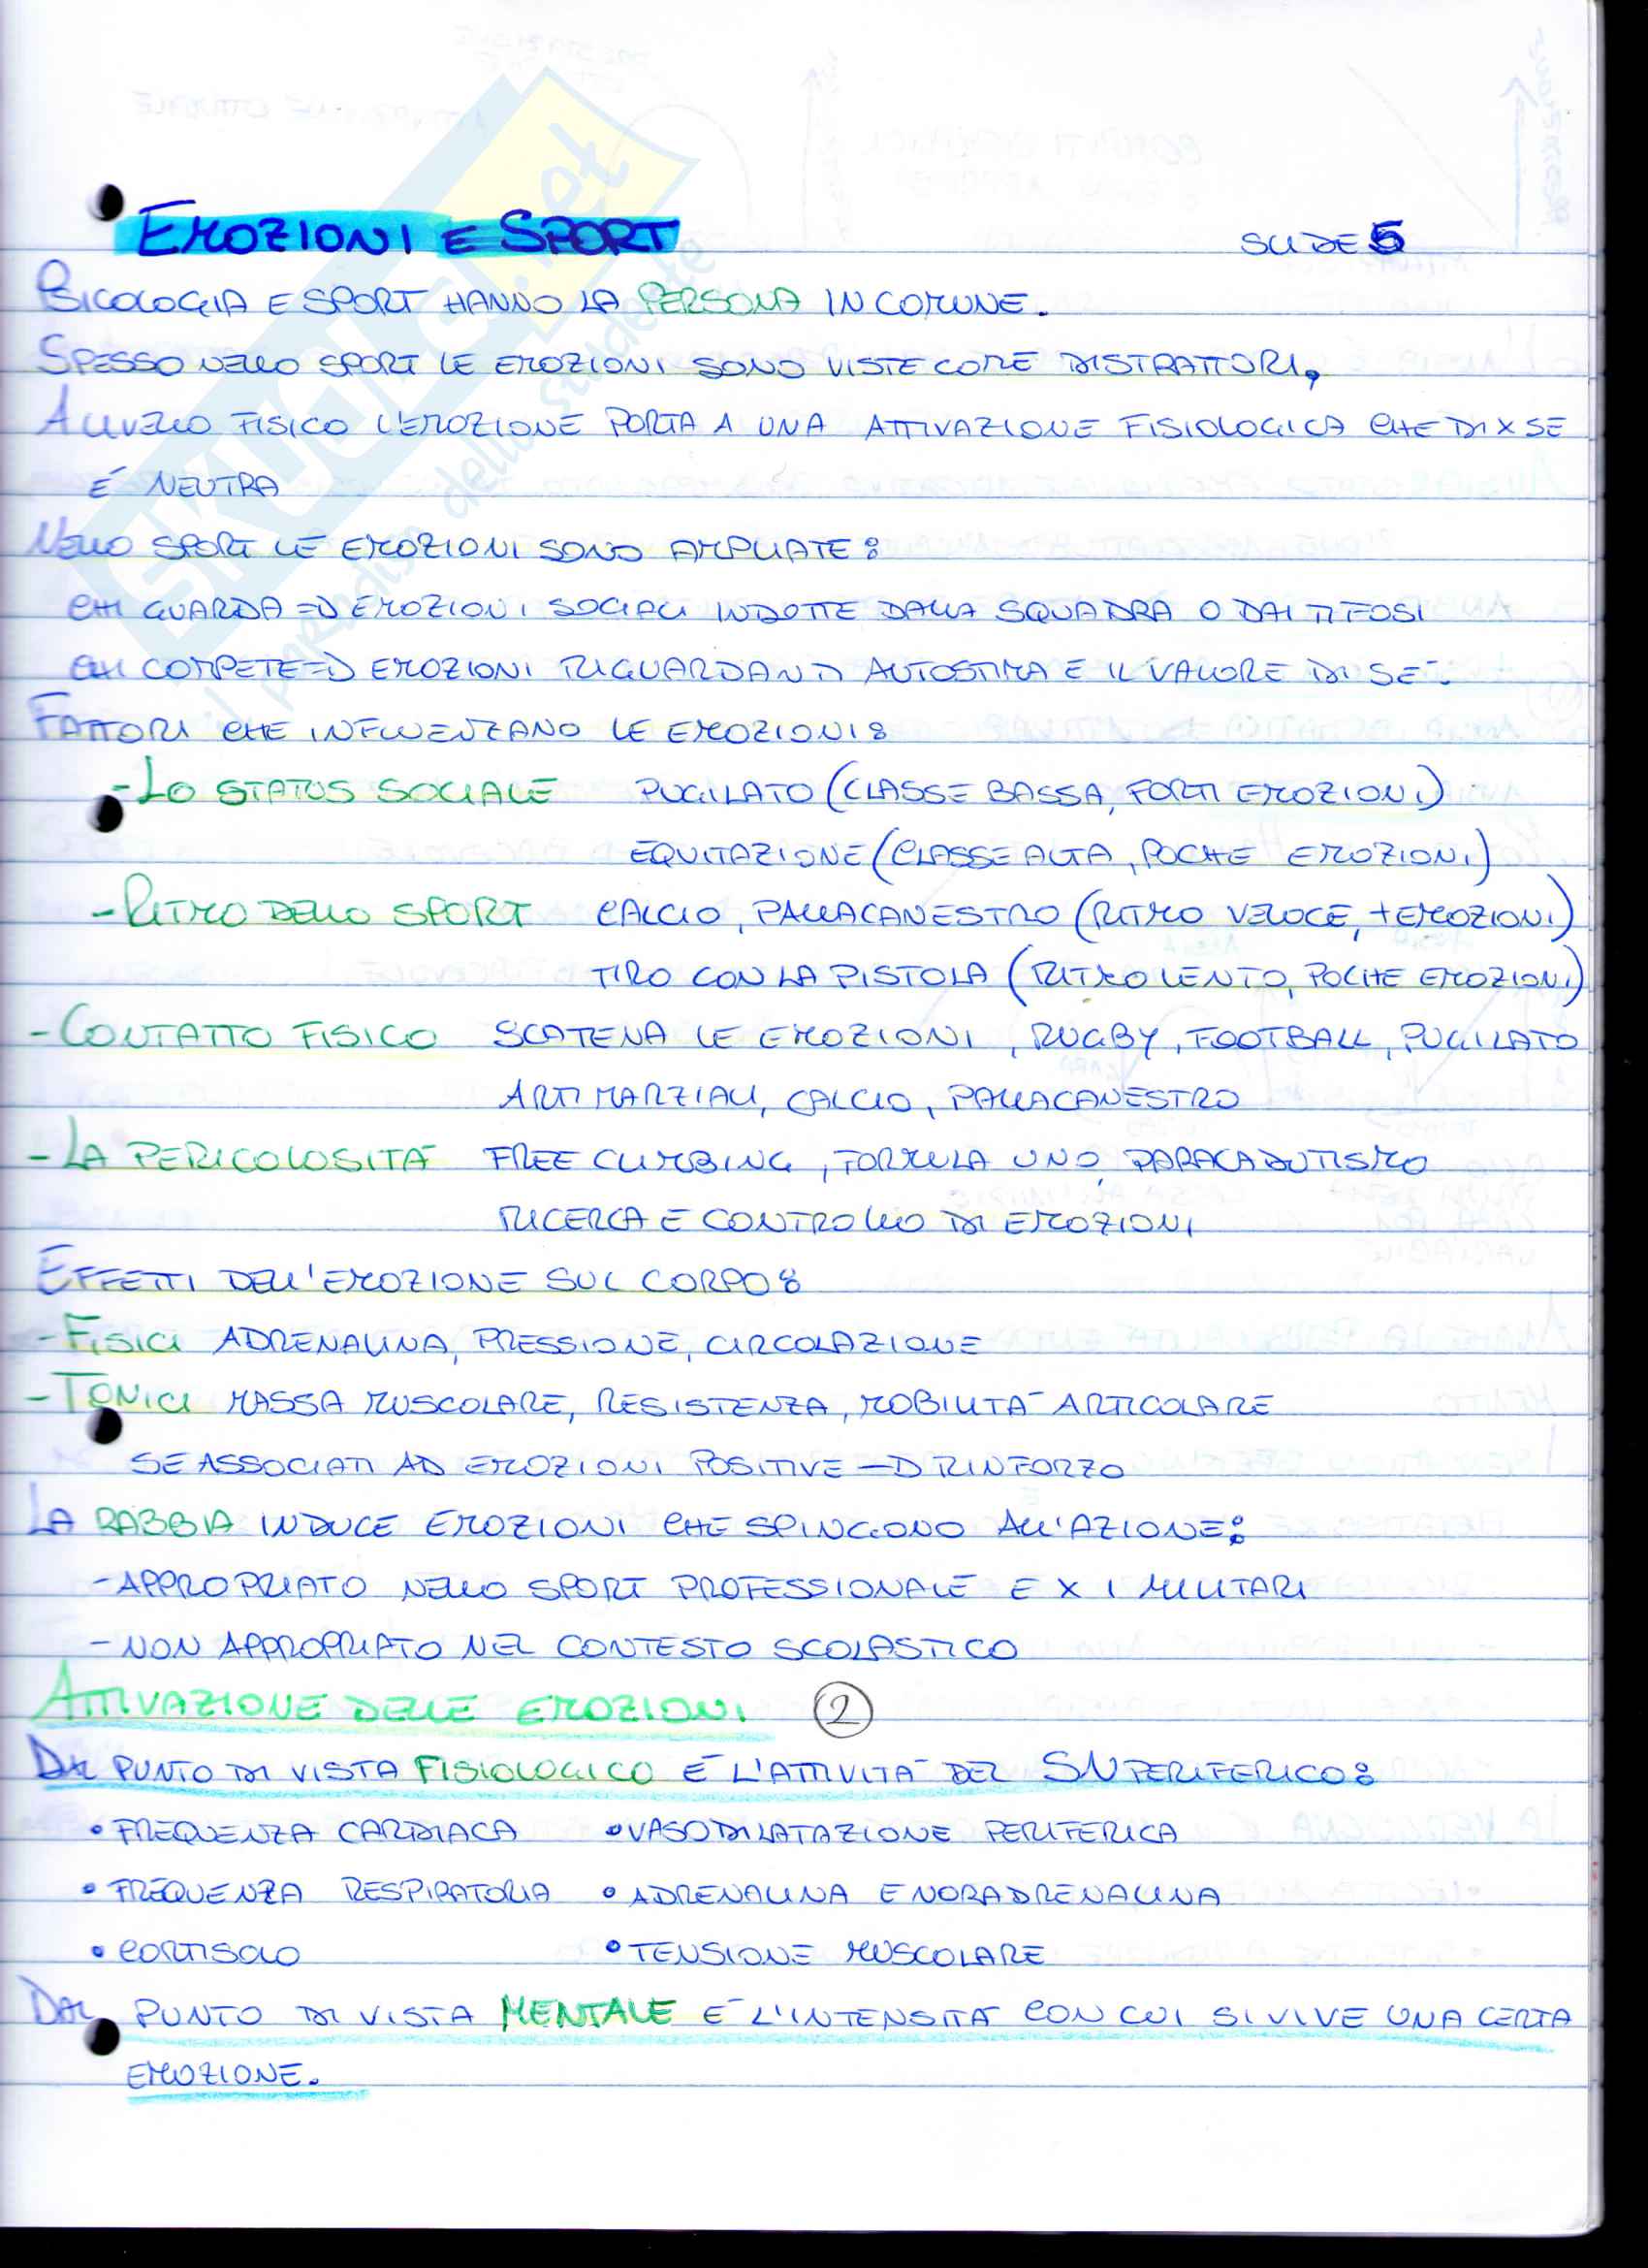 EMOZIONI E SPORT SLIDE 5
PSICOLOGIA E SPORT HANNO LA PERSONA IN COMUNE.
SPESSO NELLO SPORT LE EMOZIONI SONO VISTE COME DISTRATTORI,
A LIVELLO FISICO L'EMOZIONE PORTA A UNA ATTIVAZIONE FISIOLOGICA CHE DI X SE
É NEUTRA
NELLO SPORT LE EMOZIONI SONO AMPLIATE:
CHI GUARDA => EMOZIONI SOCIALI INDOTTE DALLA SQUADRA O DAI TIFOSI
CHI COMPETE => EMOZIONI RIGUARDANTI AUTOSTIMA E IL VALORE DI SE.
FATTORI CHE INFLUENZANO LE EMOZIONI:
- LO STATUS SOCIALE PUGILATO (CLASSE BASSA, FORTI EMOZIONI)
EQUITAZIONE (CLASSE ALTA, POCHE EMOZIONI)
- RITMO DELLO SPORT CALCIO, PALLACANESTRO (RITMO VELOCE, + EMOZIONI)
TIRO CON LA PISTOLA (RITMO LENTO, POCHE EMOZIONI)
- CONTATTO FISICO SCATENA LE EMOZIONI, RUGBY, FOOTBALL, PUGILATO
ARTI MARZIALI, CALCIO, PALLACANESTRO
- LA PERICOLOSITÀ FREE CLIMBING, FORMULA UNO, PARACADUTISMO
RICERCA E CONTROLLO DI EMOZIONI
EFFETTI DELL'EMOZIONE SUL CORPO:
- FISICI ADRENALINA, PRESSIONE, CIRCOLAZIONE
- TONICI MASSA MUSCOLARE, RESISTENZA, MOBILITÀ ARTICOLARE
SE ASSOCIATI AD EMOZIONI POSITIVE -> RINFORZO
LA RABBIA INDUCE EMOZIONI CHE SPINGONO ALL'AZIONE:
- APPROPRIATO NELLO SPORT PROFESSIONALE E X I MILITARI
- NON APPROPRIATO NEL CONTESTO SCOLASTICO
ATTIVAZIONE DELLE EMOZIONI 2
DAL PUNTO DI VISTA FISIOLOGICO È L'ATTIVITÀ DEL SN PERIFERICO:
• FREQUENZA CARDIACA • VASODILATAZIONE PERIFERICA
• FREQUENZA RESPIRATORIA • ADRENALINA E NORADRENALINA
• CORTISOLO • TENSIONE MUSCOLARE
DAL PUNTO DI VISTA MENTALE È L'INTENSITÀ CON CUI SI VIVE UNA CERTA
EMOZIONE.
skuola.net
il paradiso dello studente